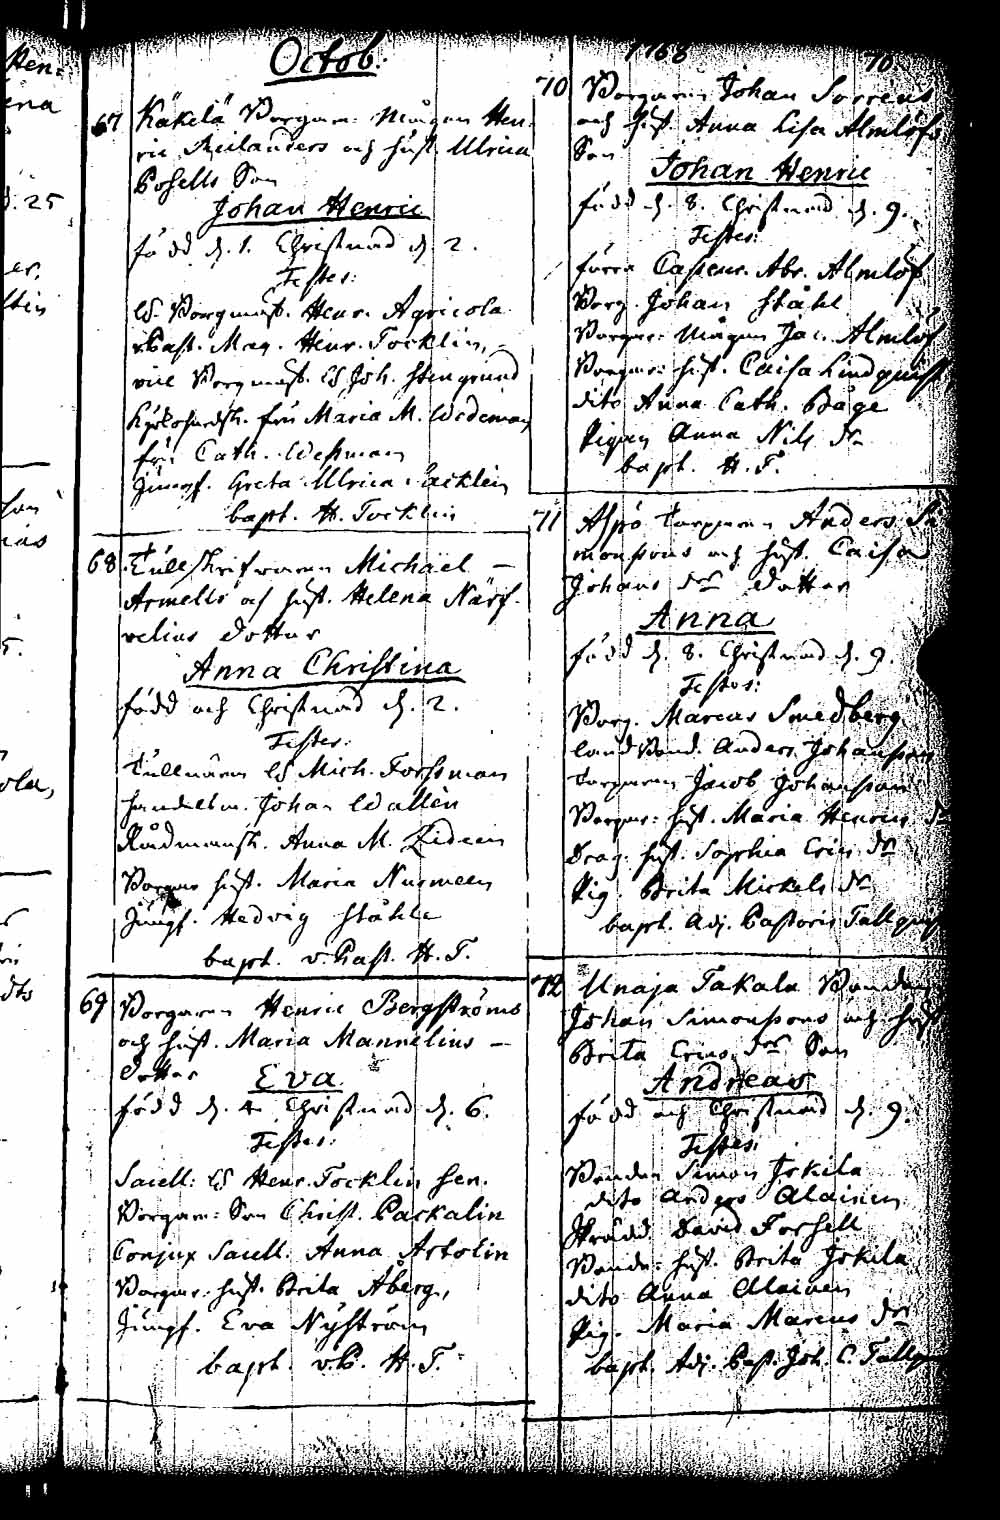 Octob:
67 Käkelä Borgare: Mågen Hen-
ric Reilanders och hust. Ulrica
Posells Son
Johan Henric
född d. 1. Christnad d. 2.
Testes:
H. Borgmäst. Henr. Agricola
v Past. Mag. Henr. Tocklin,
vice Borgmäst. H Joh. Stengrund
fru Maria M. Wedeman
fru Cath. Wesman
Jumpf. Greta Ulrica
bapt. H. Tocklin
68 Tullskrifvaren Michaël –
Armells och hust. Helena Närf-
velius Dotter
Anna Christina
född och Christnad d. 2.
Testes:
Tullnären H Mich. Forssman
Handelsm. Johan Wallén
Rådmansk. Anna M. Zidein
Borgar hust. Maria Nurmeen
Jumpf. Hedvig Ståhle
bapt. v. Past. H. T.
69 Borgaren Henric Bergströms
och hust. Maria Mannelius –
Dotter
Eva
född d. 4 Christnad d. 6.
Testes:
Sacell: H Henr. Tocklin Sen.
Borgare: Son Christ. Packalin
Conjux Sacell. Anna Artolin
Borgar: hust. Brita Åberg,
Jumpf. Eva Nyström
bapt. vP. H. T.
1768
70
70 Borgaren Johan Sorrens
och hust. Anna Lisa Almlöfs
Son
Johan Henric
född d. 8. Christnad d. 9.
Testes:
förra Casseur. Abr. Almlöf
Borg. Johan Ståhl
Borgar: Mågen Jac. Almlöf
Borgar: hust. Caisa Lindquist
dito Anna Cath. Båge
Pigan Anna Nils dr
bapt. H. T.
71 Aspö Torparen Anders Si-
monssons och hust. Caisa
Johans dr Dotter
Anna
född d. 8. Christnad d. 9.
Testes:
Borg. Marcus Smedberg
Landbond. Anders Johansson
Torparen Jacob Johansson
Borgar: hust. Maria Henrics dr
Drag. hust. Sophia Erics dr
Pig. Brita Mickels dr
bapt. Adj. Pastoris Tallquist
72 Unaja Takala Bonden
Johan Simonssons och hust
Brita Erics dr Son
Andreas
född och Christnad d. 9.
Testes:
Bonden Simon Jskila
dito Anders Alainen
Skrädd David Forsell
Bonde: hust. Brita Jskila
dito Anna Alainen
Pig. Maria Marcus dr
bapt. Adj. Past. Joh. C. Tallqui